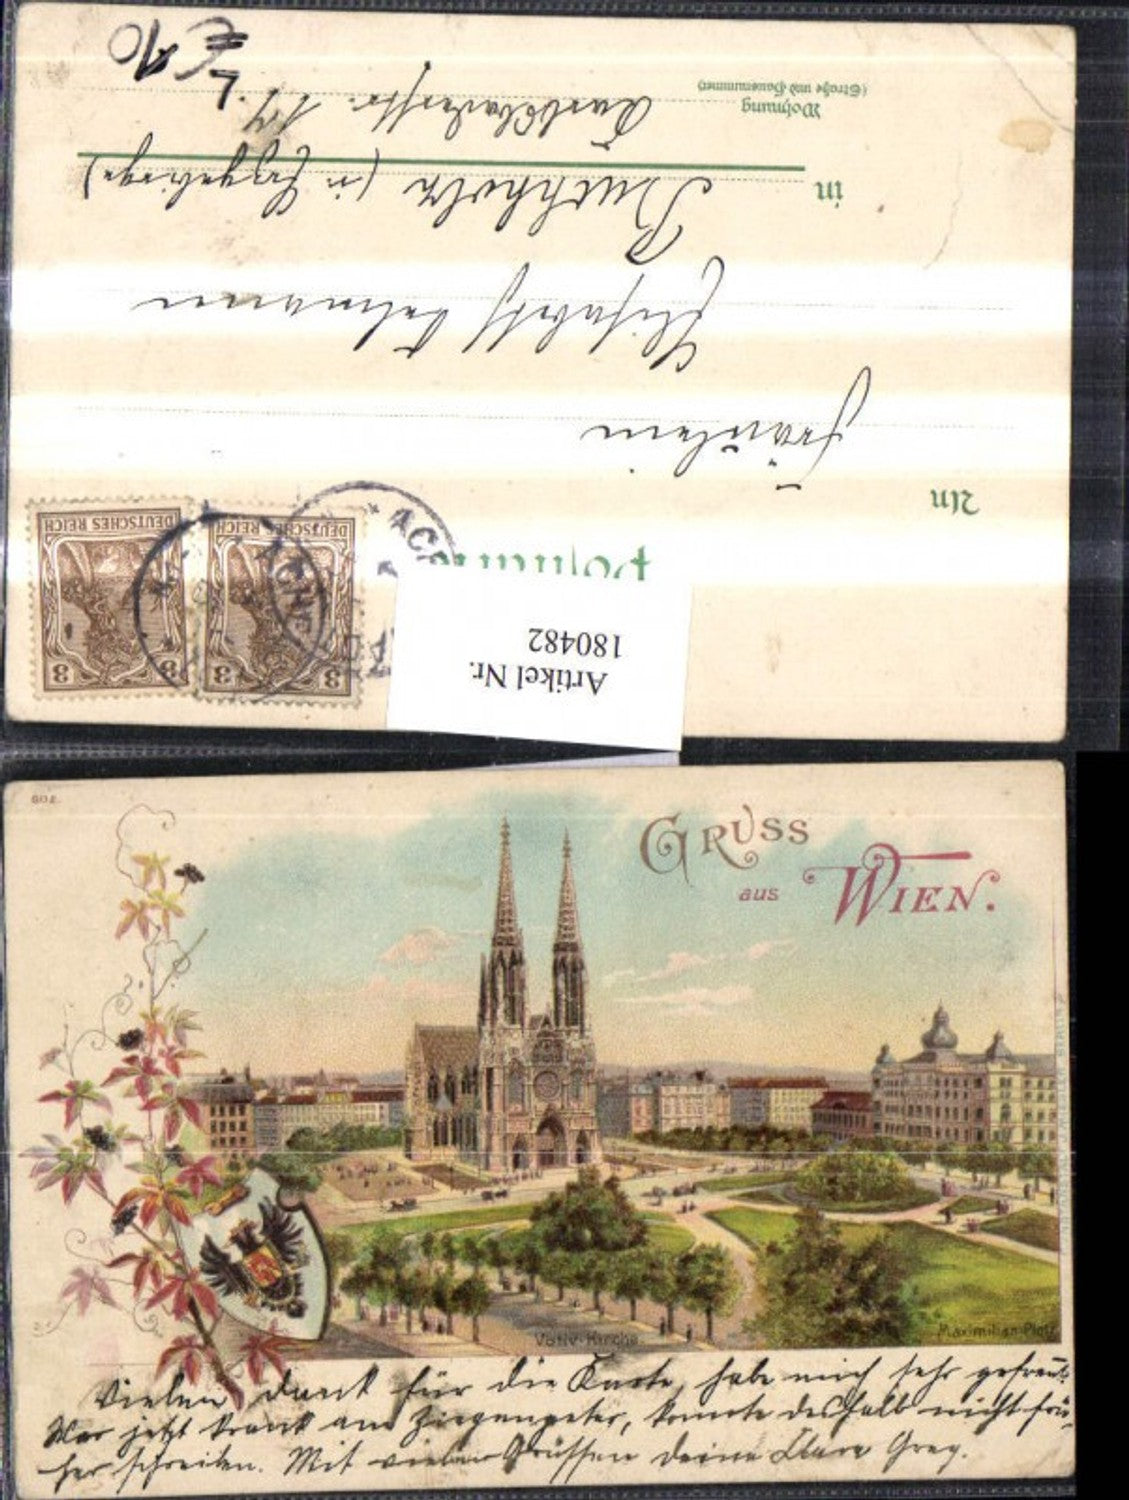 € 10
L
(Straße und Hausnummer)
Wohnung
Karlsbaderstr. 17.
in
Buchholz (in Erzgebirge)
Elisabeth Lehmann
Fräulein
An
Postkarte
DEUTSCHES REICH
DEUTSCHES REICH
3 3
3 3
AACHEN
180482
Artikel Nr.
602.
GRUSS
aus WIEN.
Votiv-Kirche
Maximilian-Platz
Vielen Danck für die Karte, habe mich sehr gefreut.
War jetzt krank am Ziegenpeter, konnte deshalb nicht frü-
her schreiben. Mit vielen Grüssen deine Clara Grey.